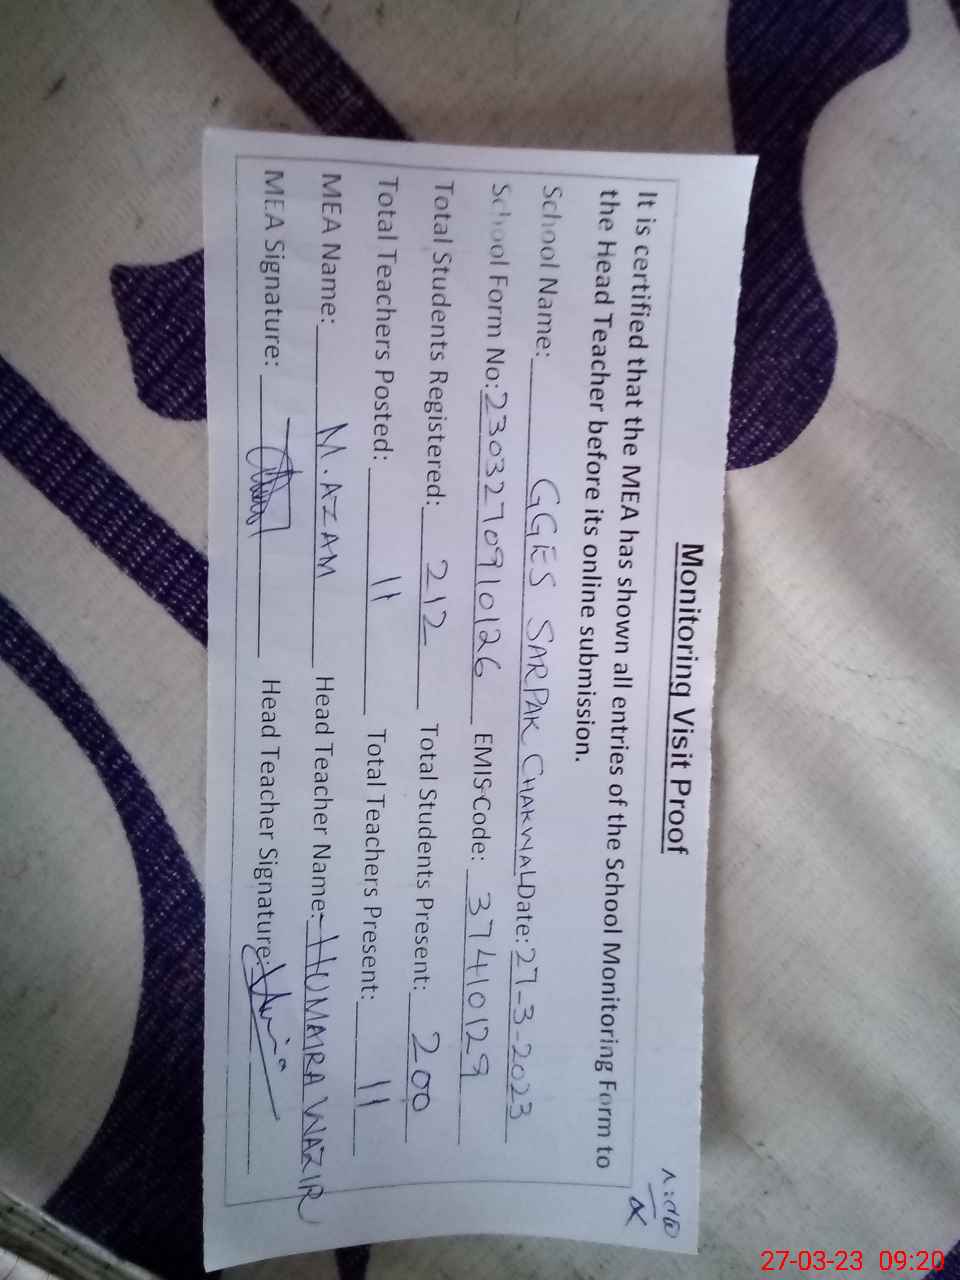 Monitoring Visit Proof
It is certified that the MEA has shown all entries of the School Monitoring Form to
the Head Teacher before its online submission.
School Name: GGES SARPAK CHAKWAL Date: 27-3-2023
School Form No: 2303270910126 EMIS Code: 37410129
Total Students Registered: 212 Total Students Present: 200
Total Teachers Posted: 11 Total Teachers Present: 11
MEA Name: M. AZAM Head Teacher Name: HUMAIRA WAZIR
MEA Signature: Head Teacher Signature:
27-03-23 09:20